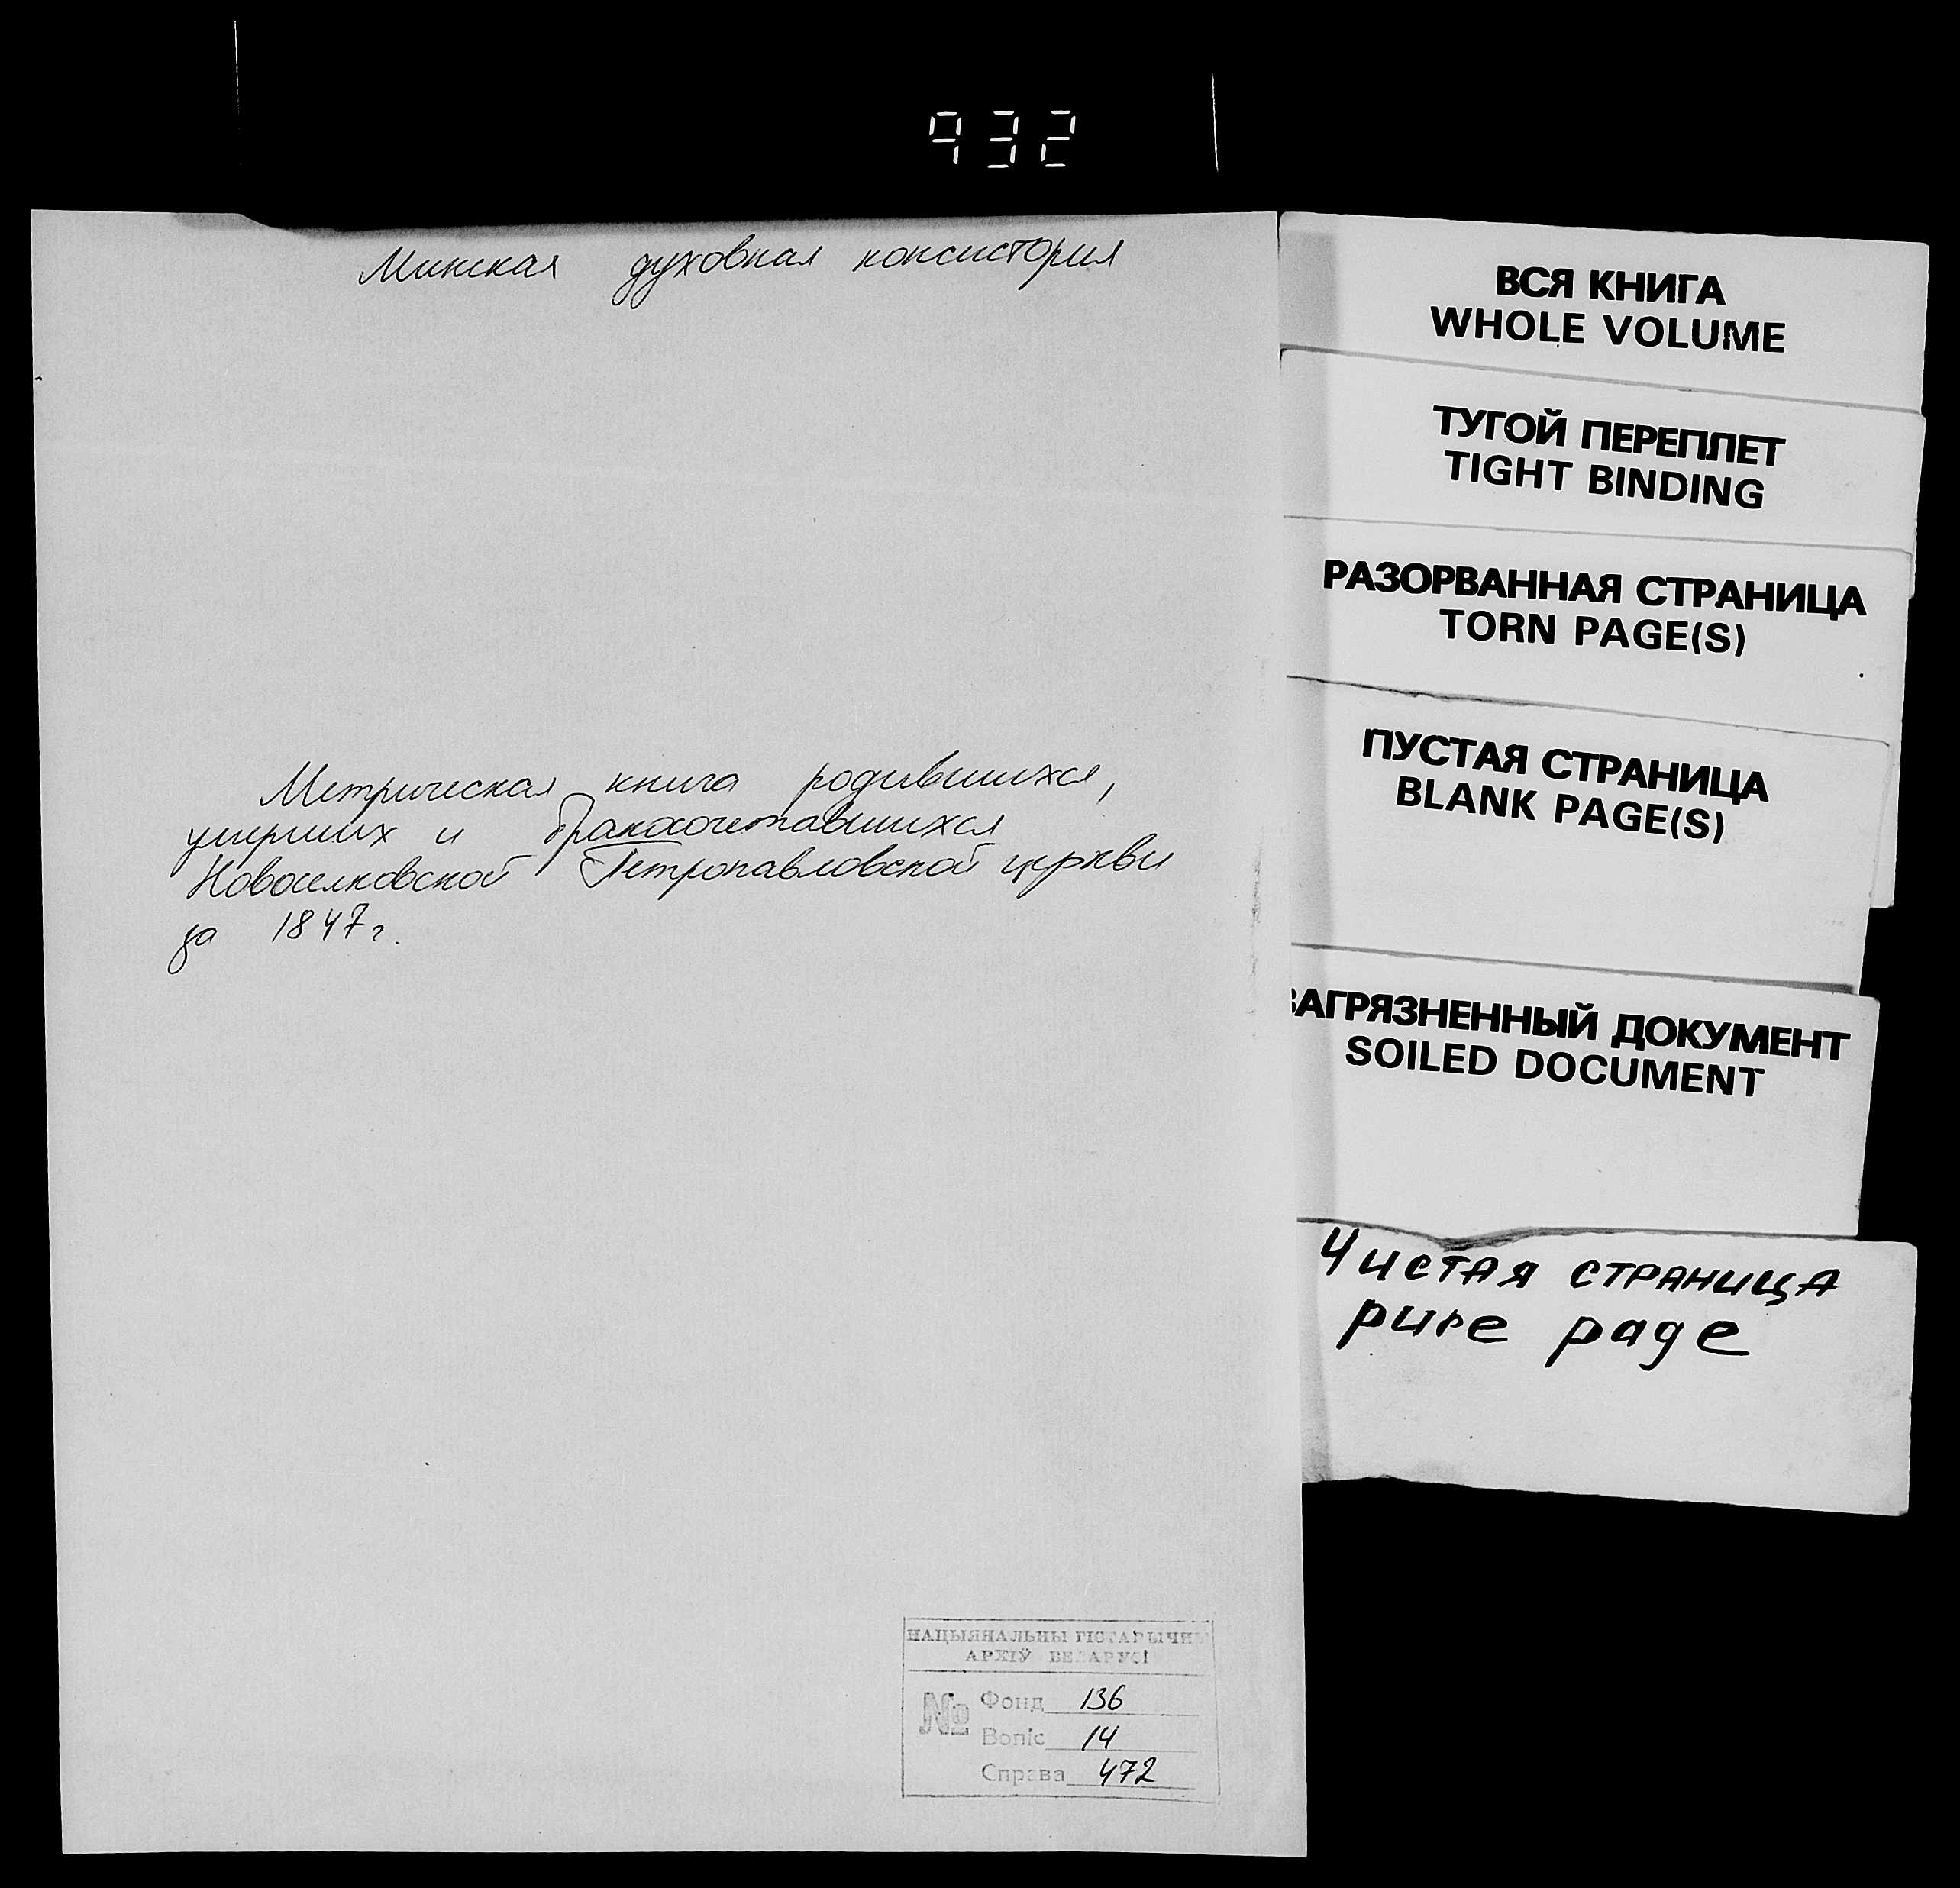 932
Минская духовная консистория
Метрическая книга родившихся,
умерших и бракосочетавшихся
Новоселковской Петропавловской церкви
за 1847 г.
НАЦЫЯНАЛЬНЫ ГІСТАРЫЧНЫ
АРХІЎ БЕЛАРУСІ
№ Фонд 136
Вопіс 14
Справа 472
ВСЯ КНИГА
WHOLE VOLUME
ТУГОЙ ПЕРЕПЛЕТ
TIGHT BINDING
РАЗОРВАННАЯ СТРАНИЦА
TORN PAGE(S)
ПУСТАЯ СТРАНИЦА
BLANK PAGE(S)
ЗАГРЯЗНЕННЫЙ ДОКУМЕНТ
SOILED DOCUMENT
Чистая страница
pure page